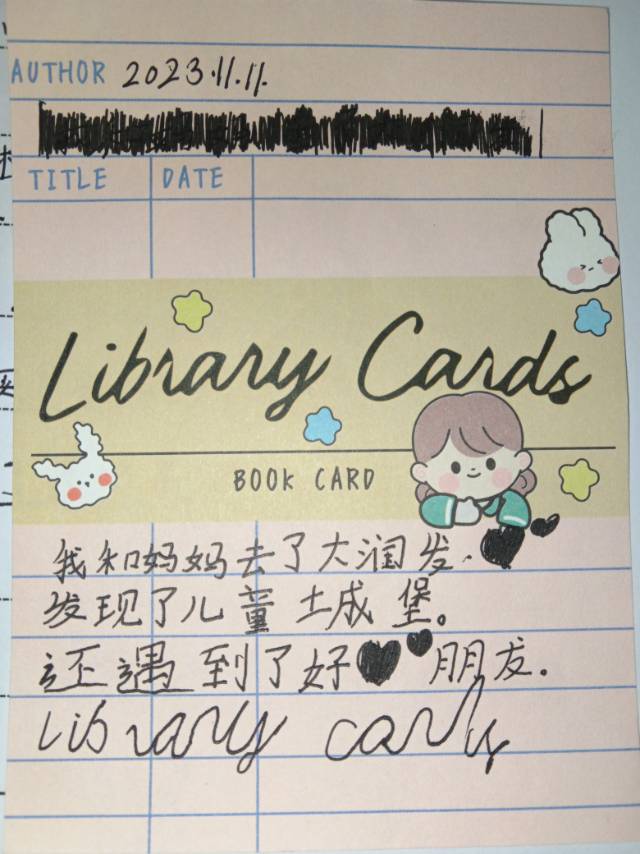 AUTHOR 2023.11.11.
TITLE DATE
Library Cards
BOOK CARD
我和妈妈去了大润发.
发现了儿童城堡。
还遇到了好朋友.
Library cards